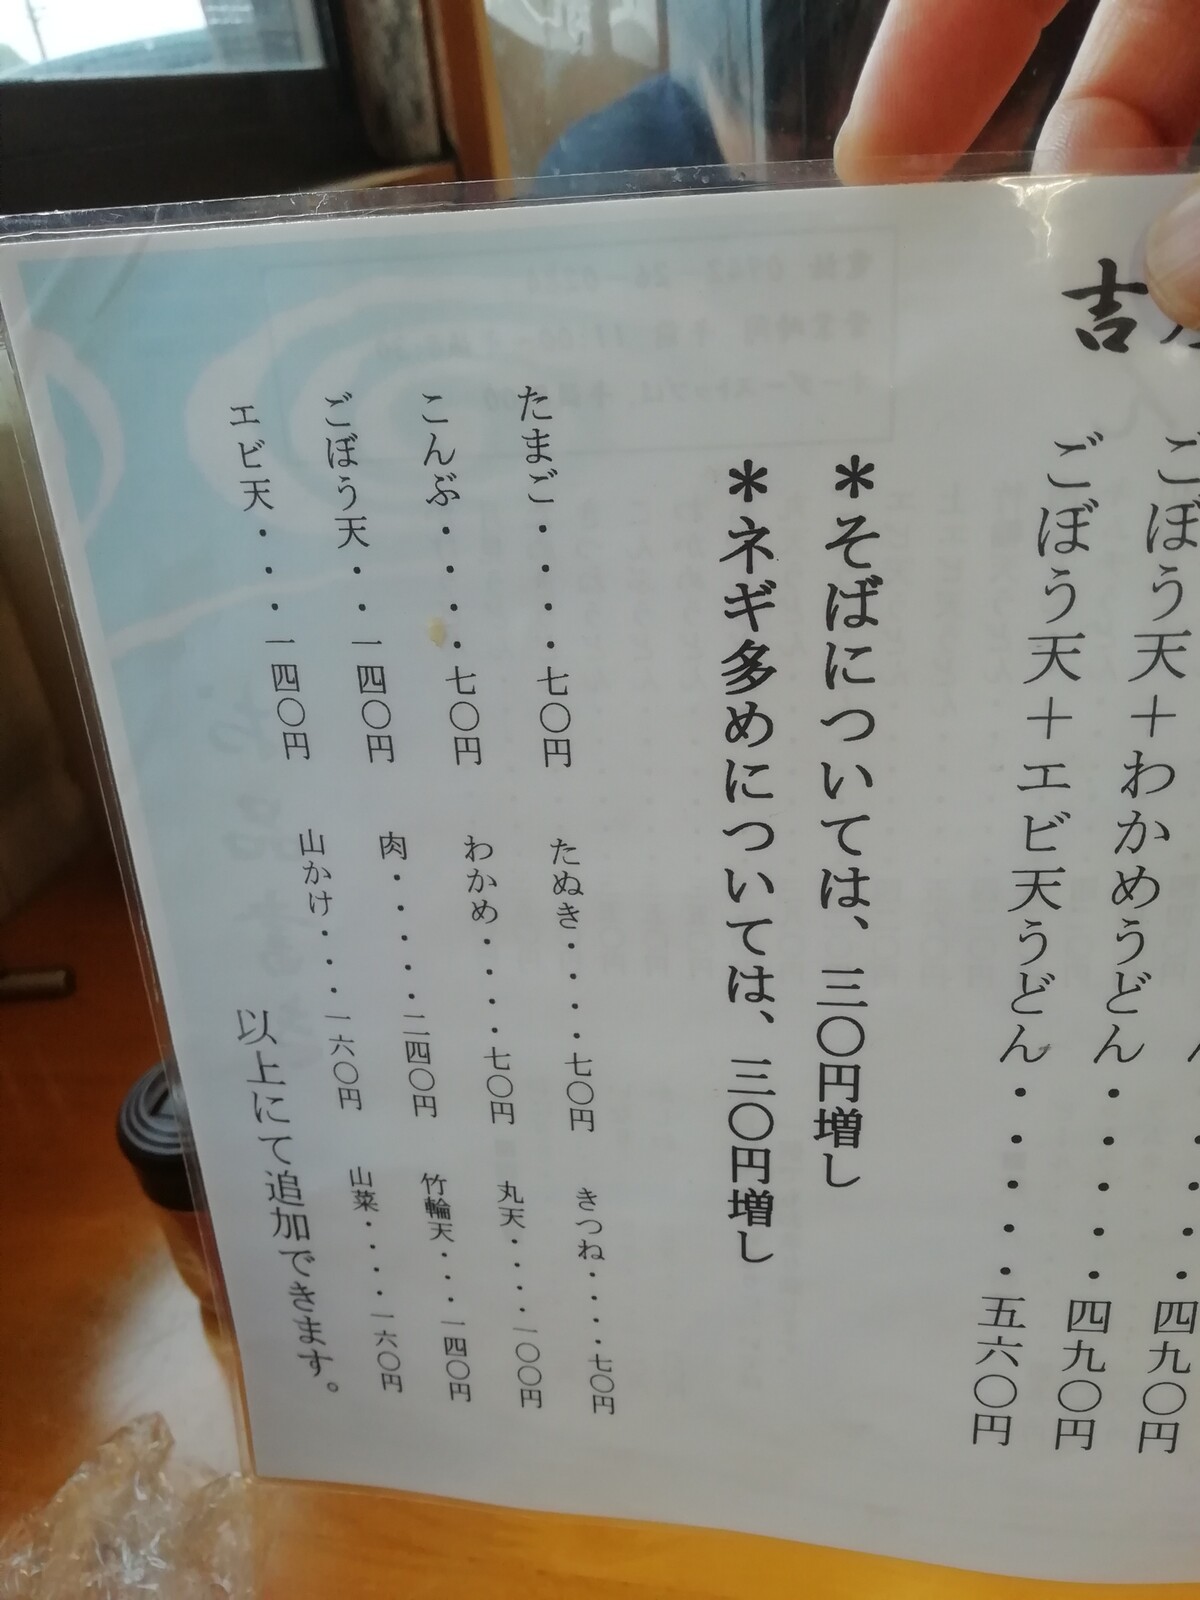 吉
ごぼう天+わかめうどん・・・・・四九〇円
ごぼう天+エビ天うどん・・・・・五六〇円
*そばについては、三〇円増し
*ネギ多めについては、三〇円増し
たまご・・・・七〇円
たぬき・・・・七〇円
きつね・・・・七〇円
こんぶ・・・・七〇円
わかめ・・・・七〇円
丸天・・・・一〇〇円
ごぼう天・・・一四〇円
肉・・・・・二四〇円
竹輪天・・・一四〇円
エビ天・・・一四〇円
山かけ・・・一六〇円
山菜・・・・一六〇円
以上にて追加できます。